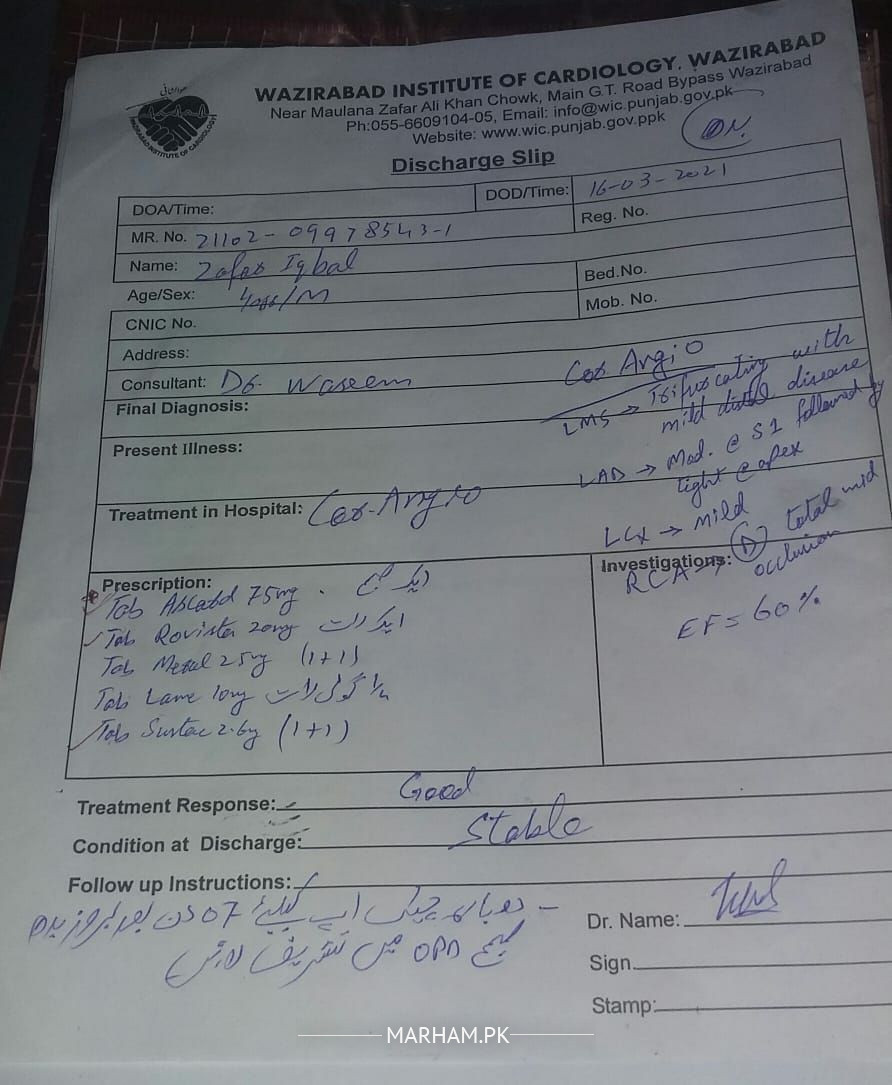 WAZIRABAD INSTITUTE OF CARDIOLOGY, WAZIRABAD
Near Maulana Zafar Ali Khan Chowk, Main G.T. Road Bypass Wazirabad
Ph:055-6609104-05, Email: info@wic.punjab.gov.pk
Website: www.wic.punjab.gov.ppk
WAZIRABAD INSTITUTE OF CARDIOLOGY
Discharge Slip
DOA/Time:
DOD/Time: 16-03-2021
MR. No. 21102-09978543-1
Reg. No.
Name: Zafar Iqbal
Bed.No.
Age/Sex: /M
Mob. No.
CNIC No.
Address:
Consultant: Dr. Waseem
Final Diagnosis:
Present Illness:
Treatment in Hospital: Cor-Angio
Cor Angio
LMS → Trifurcating with
mild distal disease
LAD → Mod. @ S1 followed by
tight @ apex
LCX → mild
RCA → (D) total mid
occlusion
Investigations:
EF = 60%
Prescription:
Tab Ascard 75mg . ایک صبح
Tab Rovista 20mg ایک رات
Tab Mezal 25mg (1+1)
Tab Lame 10mg گولی رات
Tab Sustac 2.6g (1+1)
Treatment Response: Good
Condition at Discharge: Stable
Follow up Instructions:
دوبارہ چیک اپ کیلئے 07 دن بعد بروز بدھ
صبح OPD میں تشریف لائیں
Dr. Name:
Sign.
Stamp:
MARHAM.PK